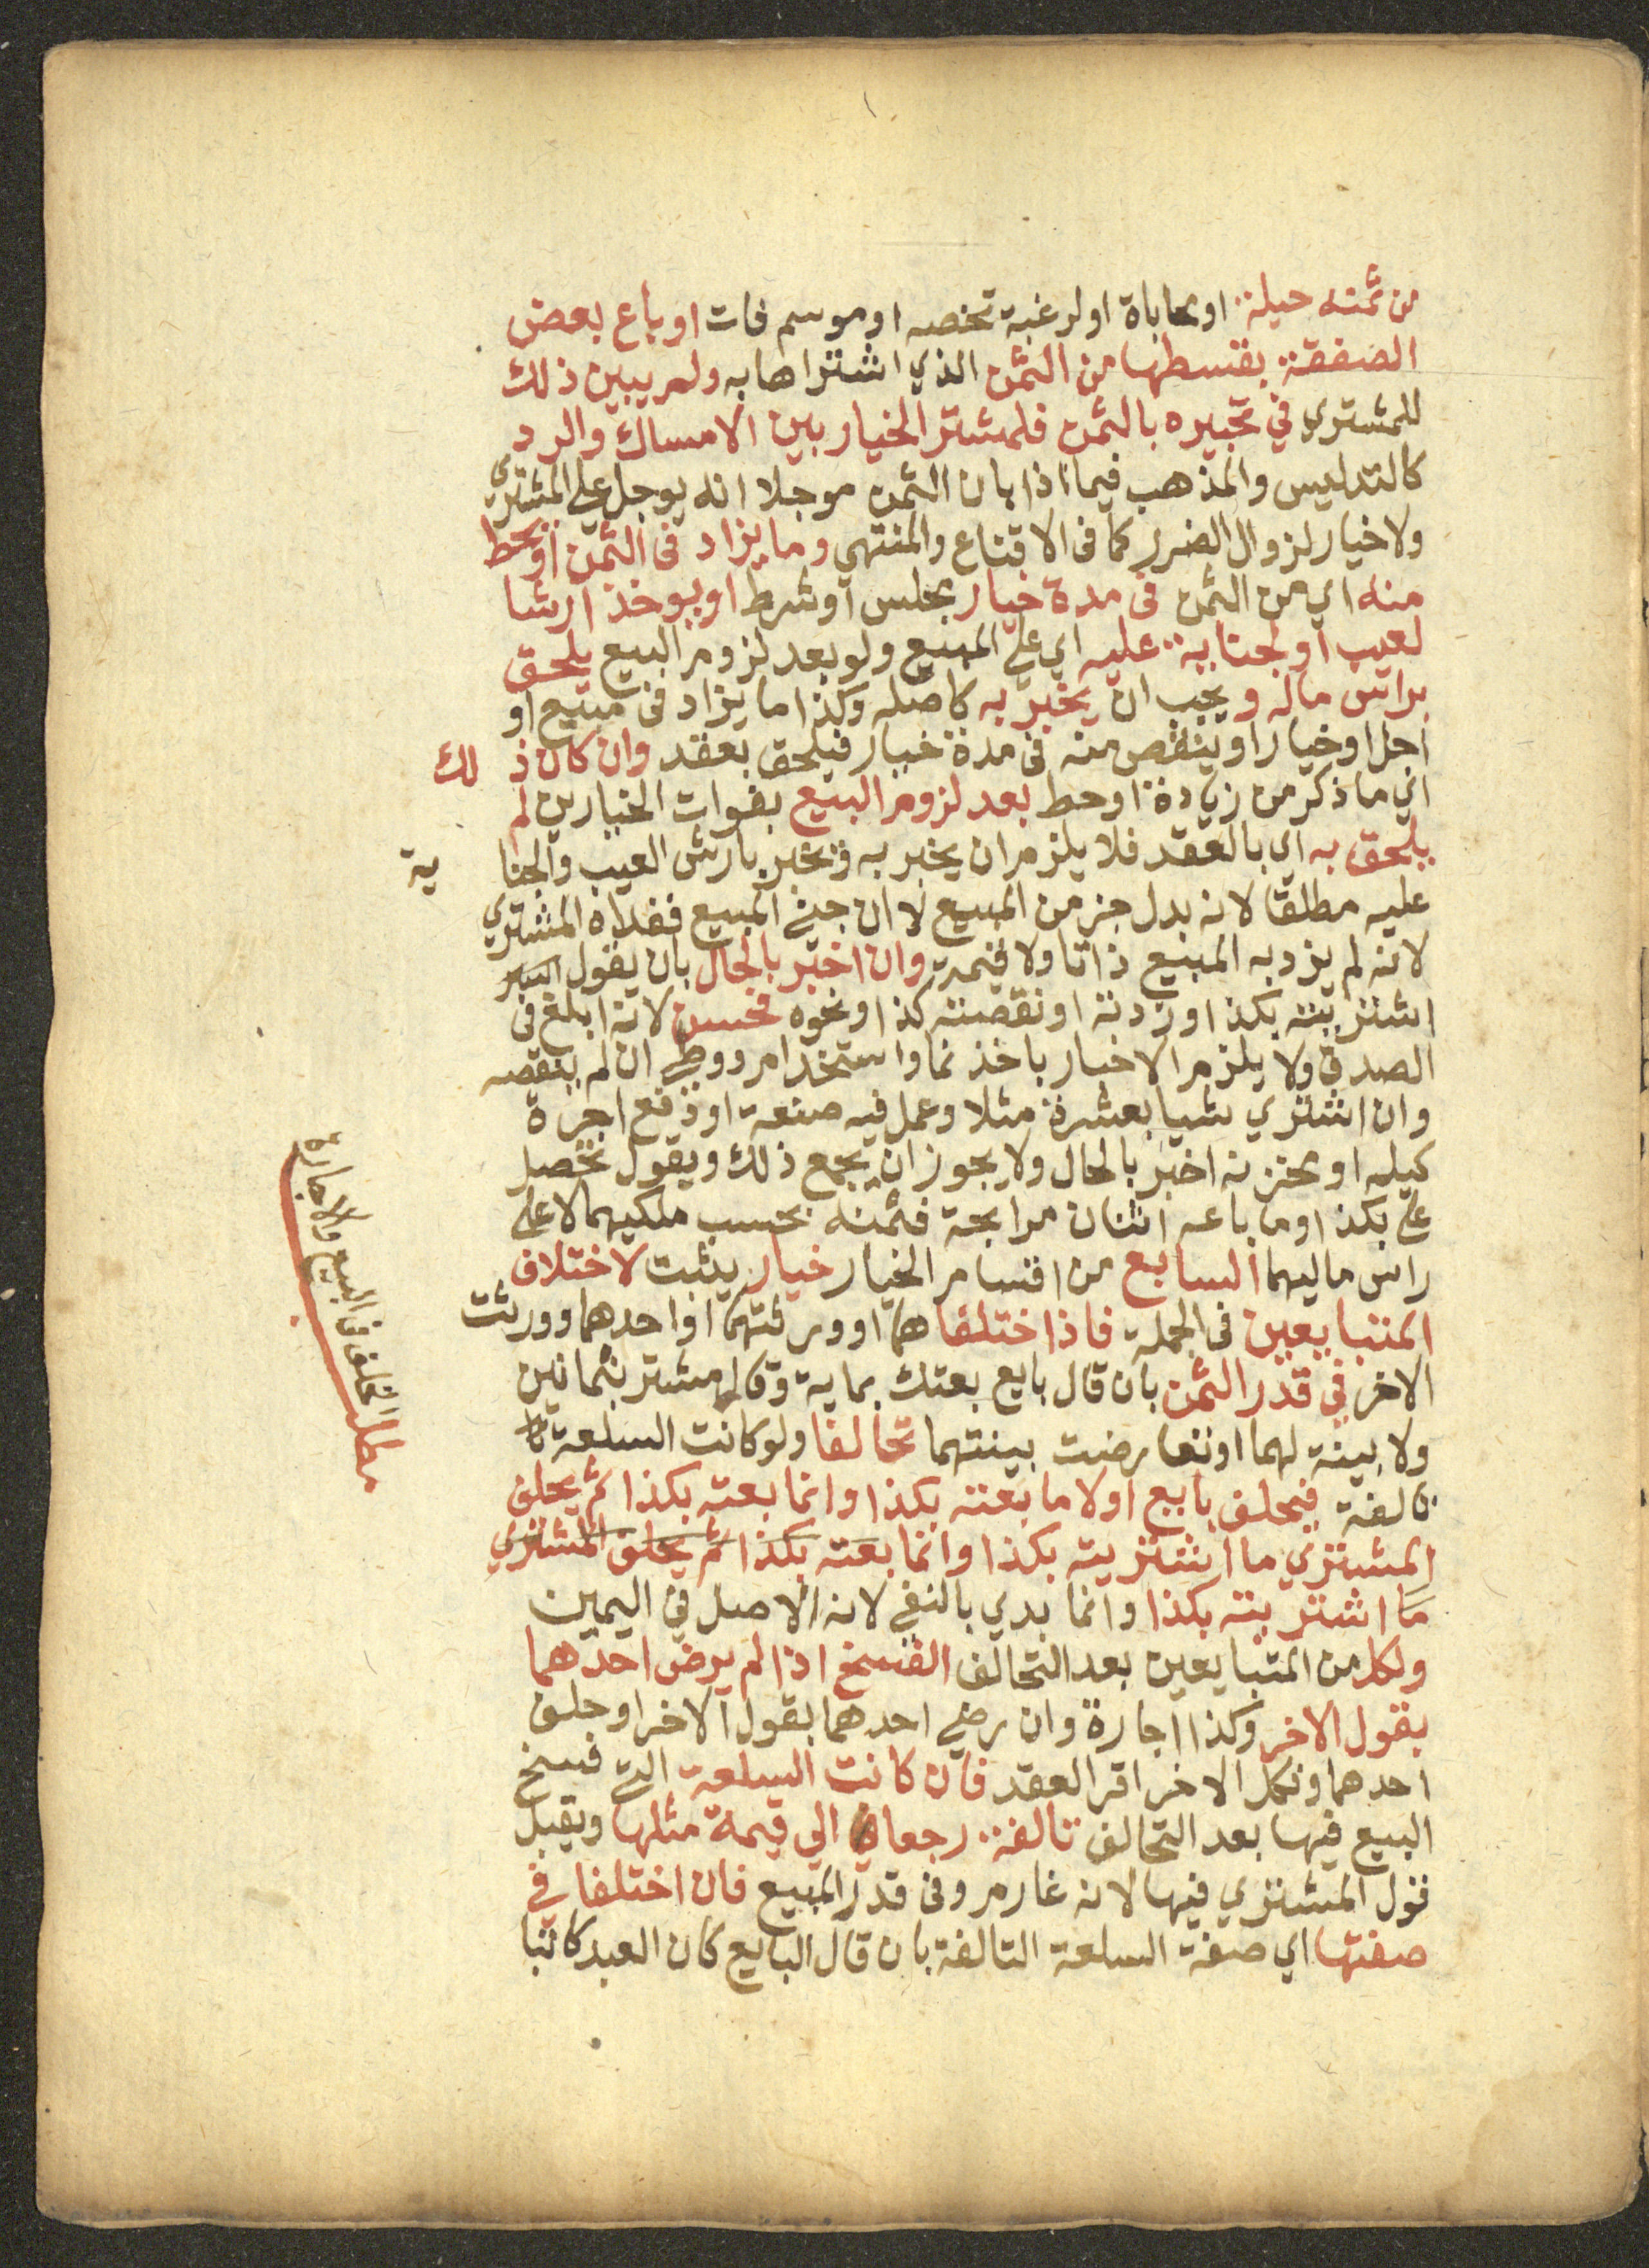 من ثمنه حيلة او محاباة او لرغبة تخصه او موسم فات او باع بعض
الصفقة بقسطها من الثمن الذي اشتراها به ولم يبين ذلك
للمشتري في تخبيره بالثمن فلمشتر الخيار بين الامساك والرد
كالتدليس والمذهب فيما اذا بان الثمن موجلا انه يوجل على المشتري
ولا خيار لزوال الضرر كما في الاقناع والمنتهي وما يزاد في الثمن او يحط
منه اي من الثمن في مدة خيار مجلس او شرط او يوخذ ارشا
لعيب او لجناية عليه اي على المبيع ولو بعد لزوم البيع يلحق
براس ماله ويجب ان يخبر به كاصله وكذا ما يزاد في مبيع او
اجل او خيار او ينقص منه في مدة خيار فيلحق بعقد وان كان ذ لك
اي ما ذكر من زيادة او حط بعد لزوم البيع بفوات الخيارين لم
يلحق به اي بالعقد فلا يلزم ان يخبر به ويخبر بارش العيب والجنا ية
عليه مطلقا لانه بدل جز من المبيع لا ان جنى المبيع ففداه المشتري
لانه لم يزد به المبيع ذاتا ولا قيمة وان اخبر بالحال بان يقول
اشتريته بكذا وزدته او نقصته كذا ونحوه فحسن لانه ابلغ في
الصدق ولا يلزم الاخبار باخذ نما واستخدام ووطي ان لم ينقصه
وان اشتري شيا بعشرة مثلا وعمل فيه صنعة او دفع اجرة
كيله او مخزنه اخبر بالحال ولا يجوز ان يجمع ذلك ويقول تحصل
علي بكذا وما باعه اثنان مرابحة فثمنه بحسب ملكيهما لا على
راس ماليهما السابع من اقسام الخيار خيار يثبت لاختلاف
المتبايعين في الجملة فاذا اختلفا هما او ورثتهما او احدهما وورثت
الاخر في قدر الثمن بان قال بايع بعتك بماية وقال مشتر بثمانين
ولا بينة لهما او تعارضت بينتهما تحالفا ولو كانت السلعة تا
تالفة فيحلف بايع اولا ما بعته بكذا وانما بعته بكذا ثم يحلف
المشتري ما اشتريته بكذا وانما بعته بكذا ثم يحلف المشتري
ما اشتريته بكذا وانما بدي بالنفي لانه الاصل في اليمين
ولكل من المتبايعين بعد التحالف الفسخ اذا لم يرض احدهما
بقول الاخر وكذا اجارة وان رضي احدهما بقول الاخر او حلف
احدهما ونكل الاخر اقر العقد فان كانت السلعة التي فسخ
البيع فيها بعد التحالف تالفة رجعا الي قيمة مثلها ويقبل
قول المشتري فيها لانه غارم وفي قدر المبيع فان اختلفا في
صفتها اي صفة السلعة التالفة بان قال البايع كان العبد كاتبا
مطلب الخلف في البيع والاجارة